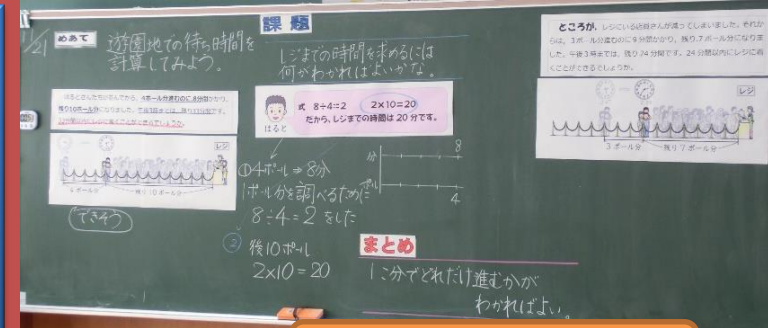 11/21
めあて
遊園地での待ち時間を
計算してみよう。
4ポール分進むのに8分間かかり、
残り10ポール分になりました。
4ポール分
残り10ポール分
レジ
できそう
課題
レジまでの時間を求めるには
何がわかればよいかな。
はると
式 8÷4=2 2×10=20
だから、レジまでの時間は20分です。
①4ポール⇒8分
1ポール分を調べるために
8÷4=2をした
② 後10ポール
2×10=20
分
8
ポール
4
まとめ
1こ分でどれだけ進むかが
わかればよい。
ところが、レジにいる店員さんが減ってしまいました。それか
らは、3ポール分進むのに9分間かかり、残り7ポール分になりまし
た。午後3時までは、残り24分間です。24分間以内にレジに着
くことができるでしょうか。
レジ
3ポール分
残り7ポール分